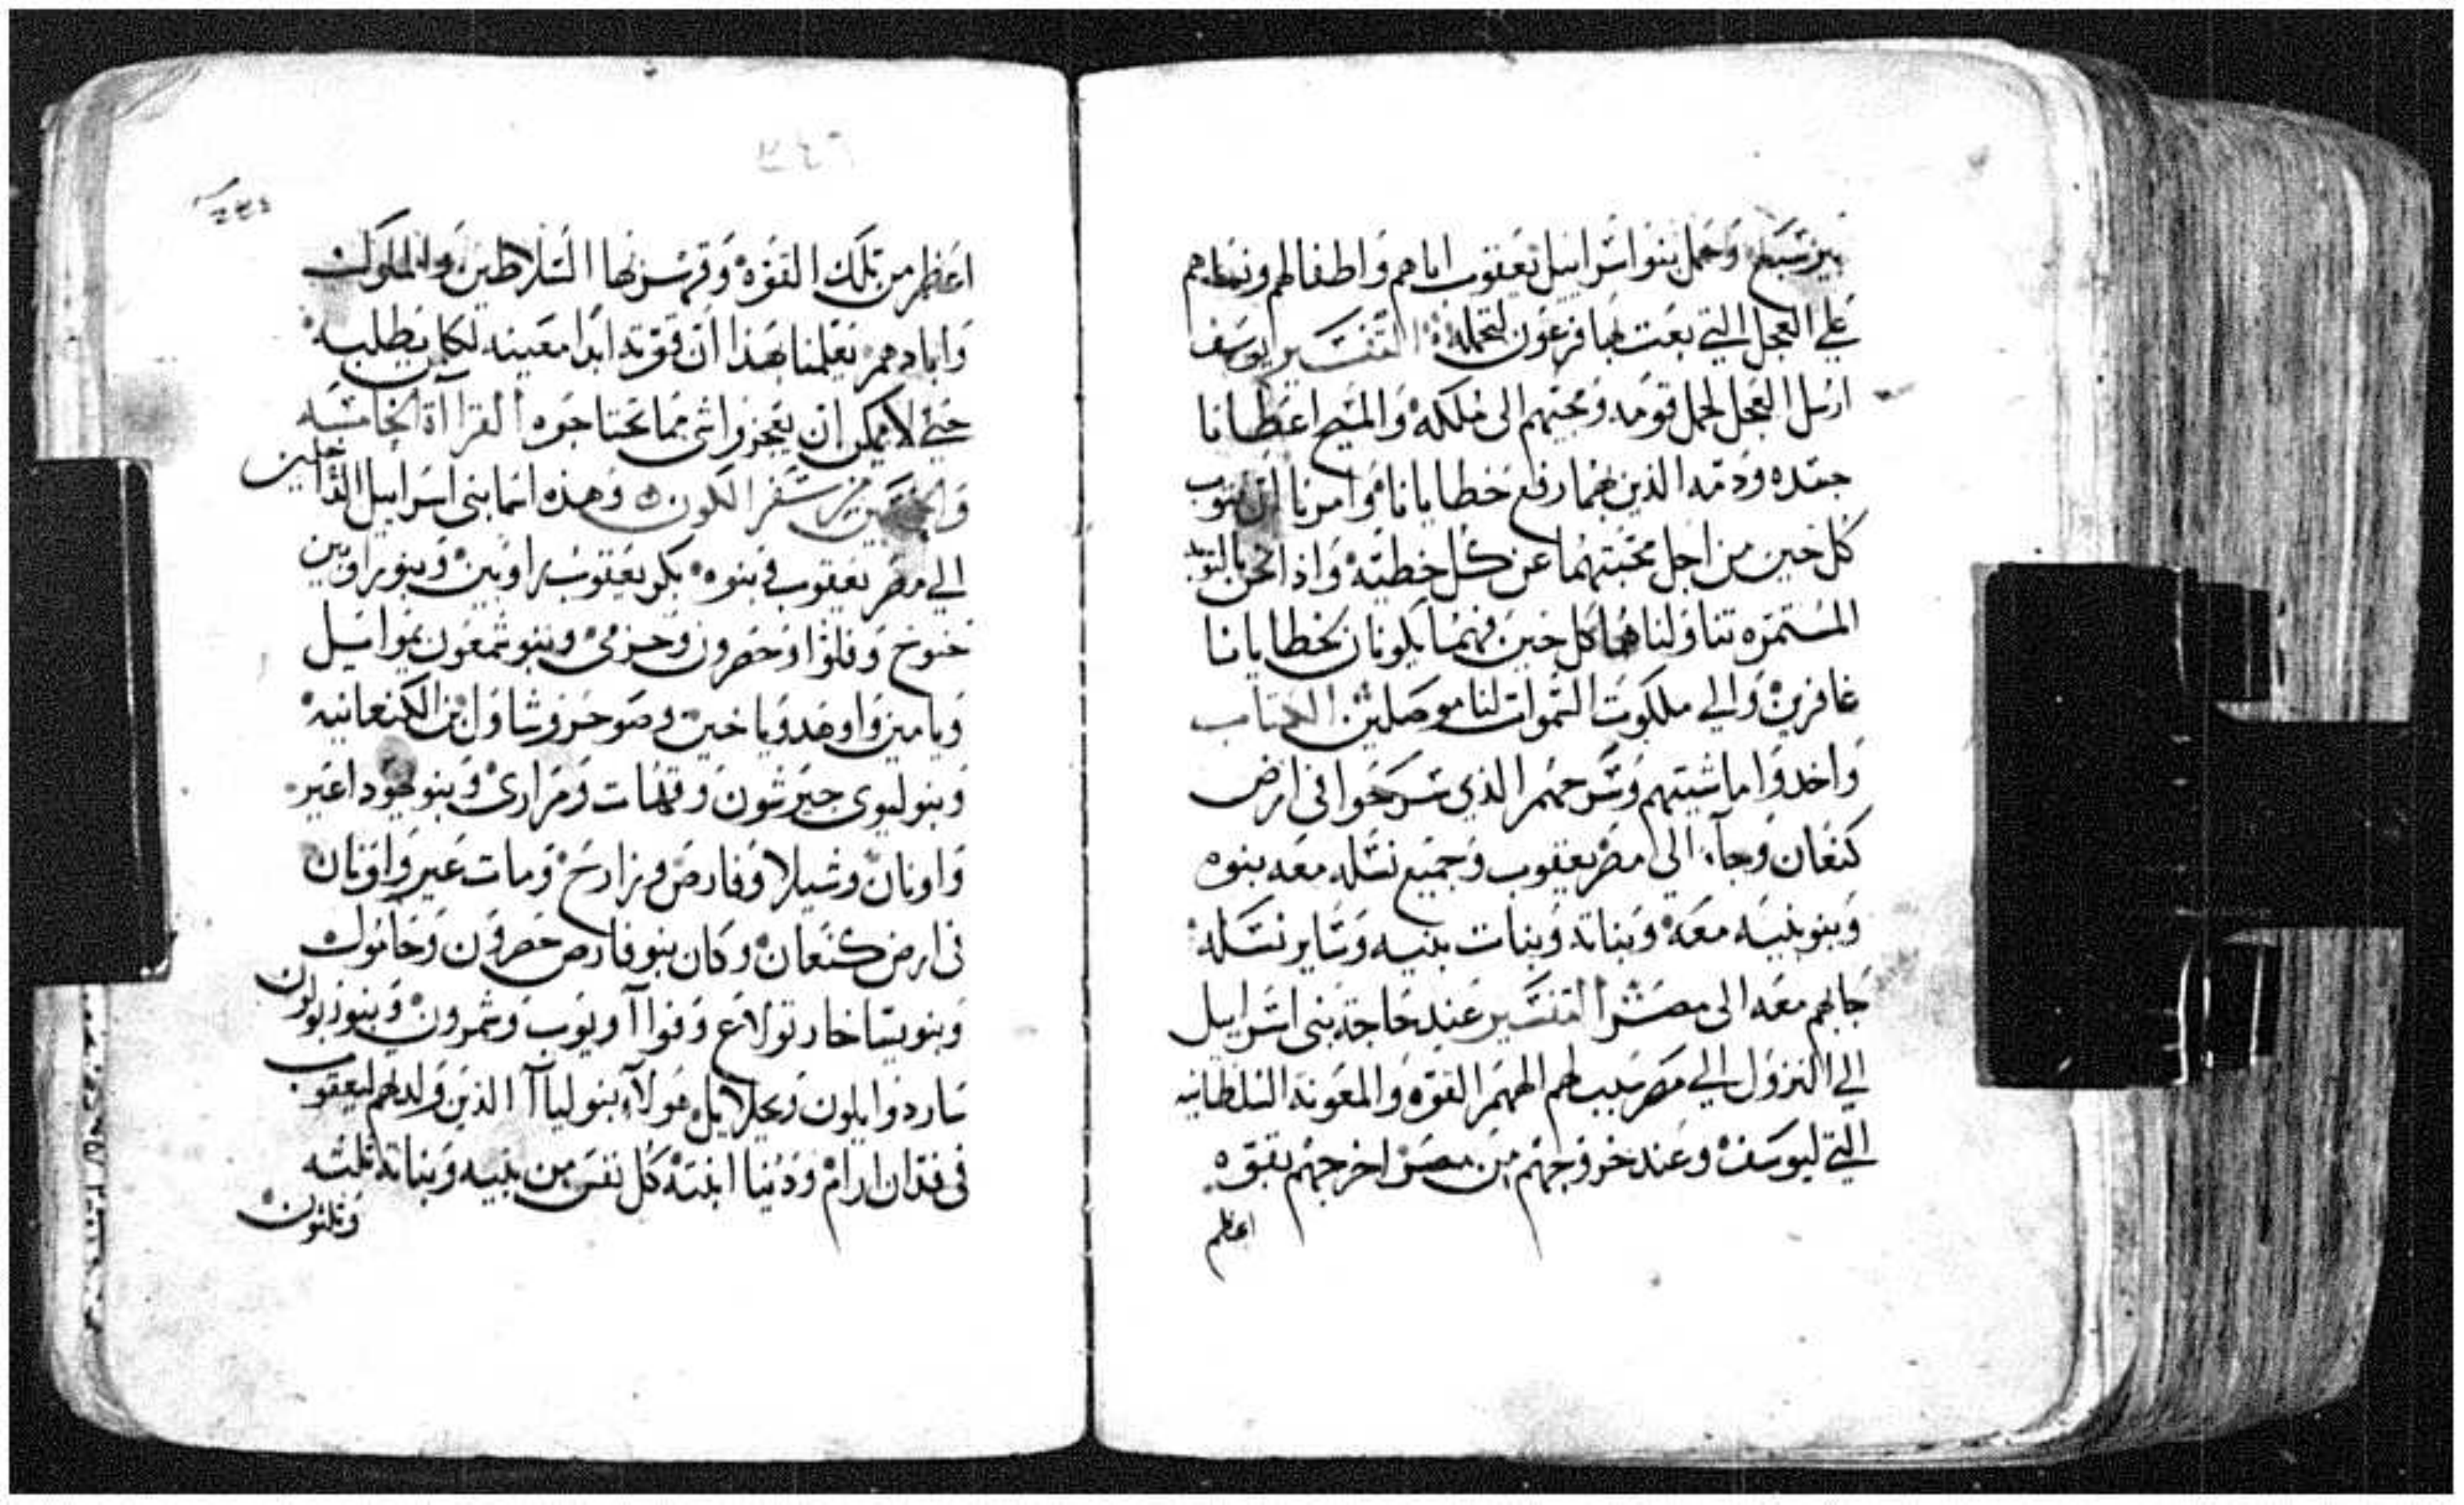 بيرسبع وحمل بنوا اسراييل يعقوب اباهم واطفالهم ونساهم
علي العجل التي بعت بها فرعون لتحمله التفسير يوسف
ارسل العجل لحمل قومه ومجيهم الى ملكه والمسيح اعطانا
جسده ودمه الذين بهما رفع خطايانا وامرنا ان نتوب
كل حين من اجل محبتهما عن كل خطيه واذا نحن بالتوبه
المستمره تناولناهما كل حين فهما يكونان لخطايانا
غافرين والي ملكوت السموات لنا موصلين الكتاب
واخدوا ماشيتهم وسرحهم الذي سرحوا في ارض
كنعان وجاء الي مصر يعقوب وجميع نسله معه بنوه
وبنو بنيه معه وبناته وبنات بنيه وساير نسله
جابهم معه الى مصر التفسير عند حاجة بني اسراييل
الي النزول الي مصر سبب لهم الههم القوه والمعونه السلطانيه
التي ليوسف وعند خروجهم من مصر اخرجهم بقوه
اعظم
اعظم من تلك القوه وقهر بها السلاطين والملوك
وابادهم يعلمنا بهذا ان قوته ابدا معينه لكل من يطلبه
حتي لا يمكن ان يعجزوا شي مما يحتاجوه القراآة الخامسه
والخمسين من سفر الكون وهذه اسما بني اسراييل الداخلين
الي مصر يعقوب وبنوه بكر يعقوب راوبين وبنو راوبين
خنوخ وفلوا وحصرون وحزمي وبنو شمعون يمواييل
ويامين واوهد وياخين وصوحر وشاول ابن الكنعانيه
وبنو ليوي جيرشون وقهات ومراري وبنو يهودا عير
واونان وشيلا وفارص وزارح ومات عير واونان
في ارض كنعان وكان بنو فارص حصرون وحامول
وبنو يساخار تولاع وفوا آ ويوب وشمرون وبنو زبولون
سارد وايلون ويحلاييل هولاء بنو ليا آ الذين ولدهم ليعقوب
في فدان ارام ودينا ابنته كل نفس من بنيه وبناته تلته
وتلتون